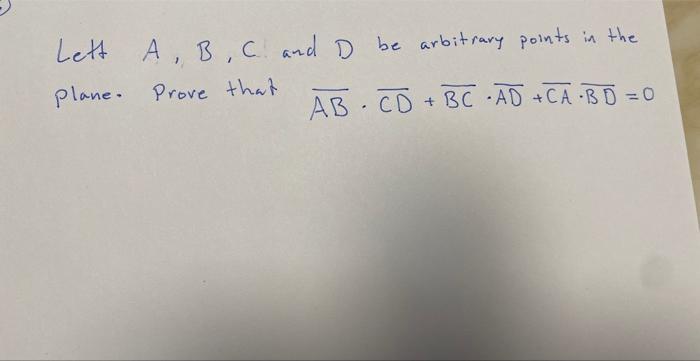 Lett A, B, C and D be arbitrary points in the
plane. Prove that A̅B̅ · C̅D̅ + B̅C̅ · A̅D̅ + C̅A̅ · B̅D̅ = 0